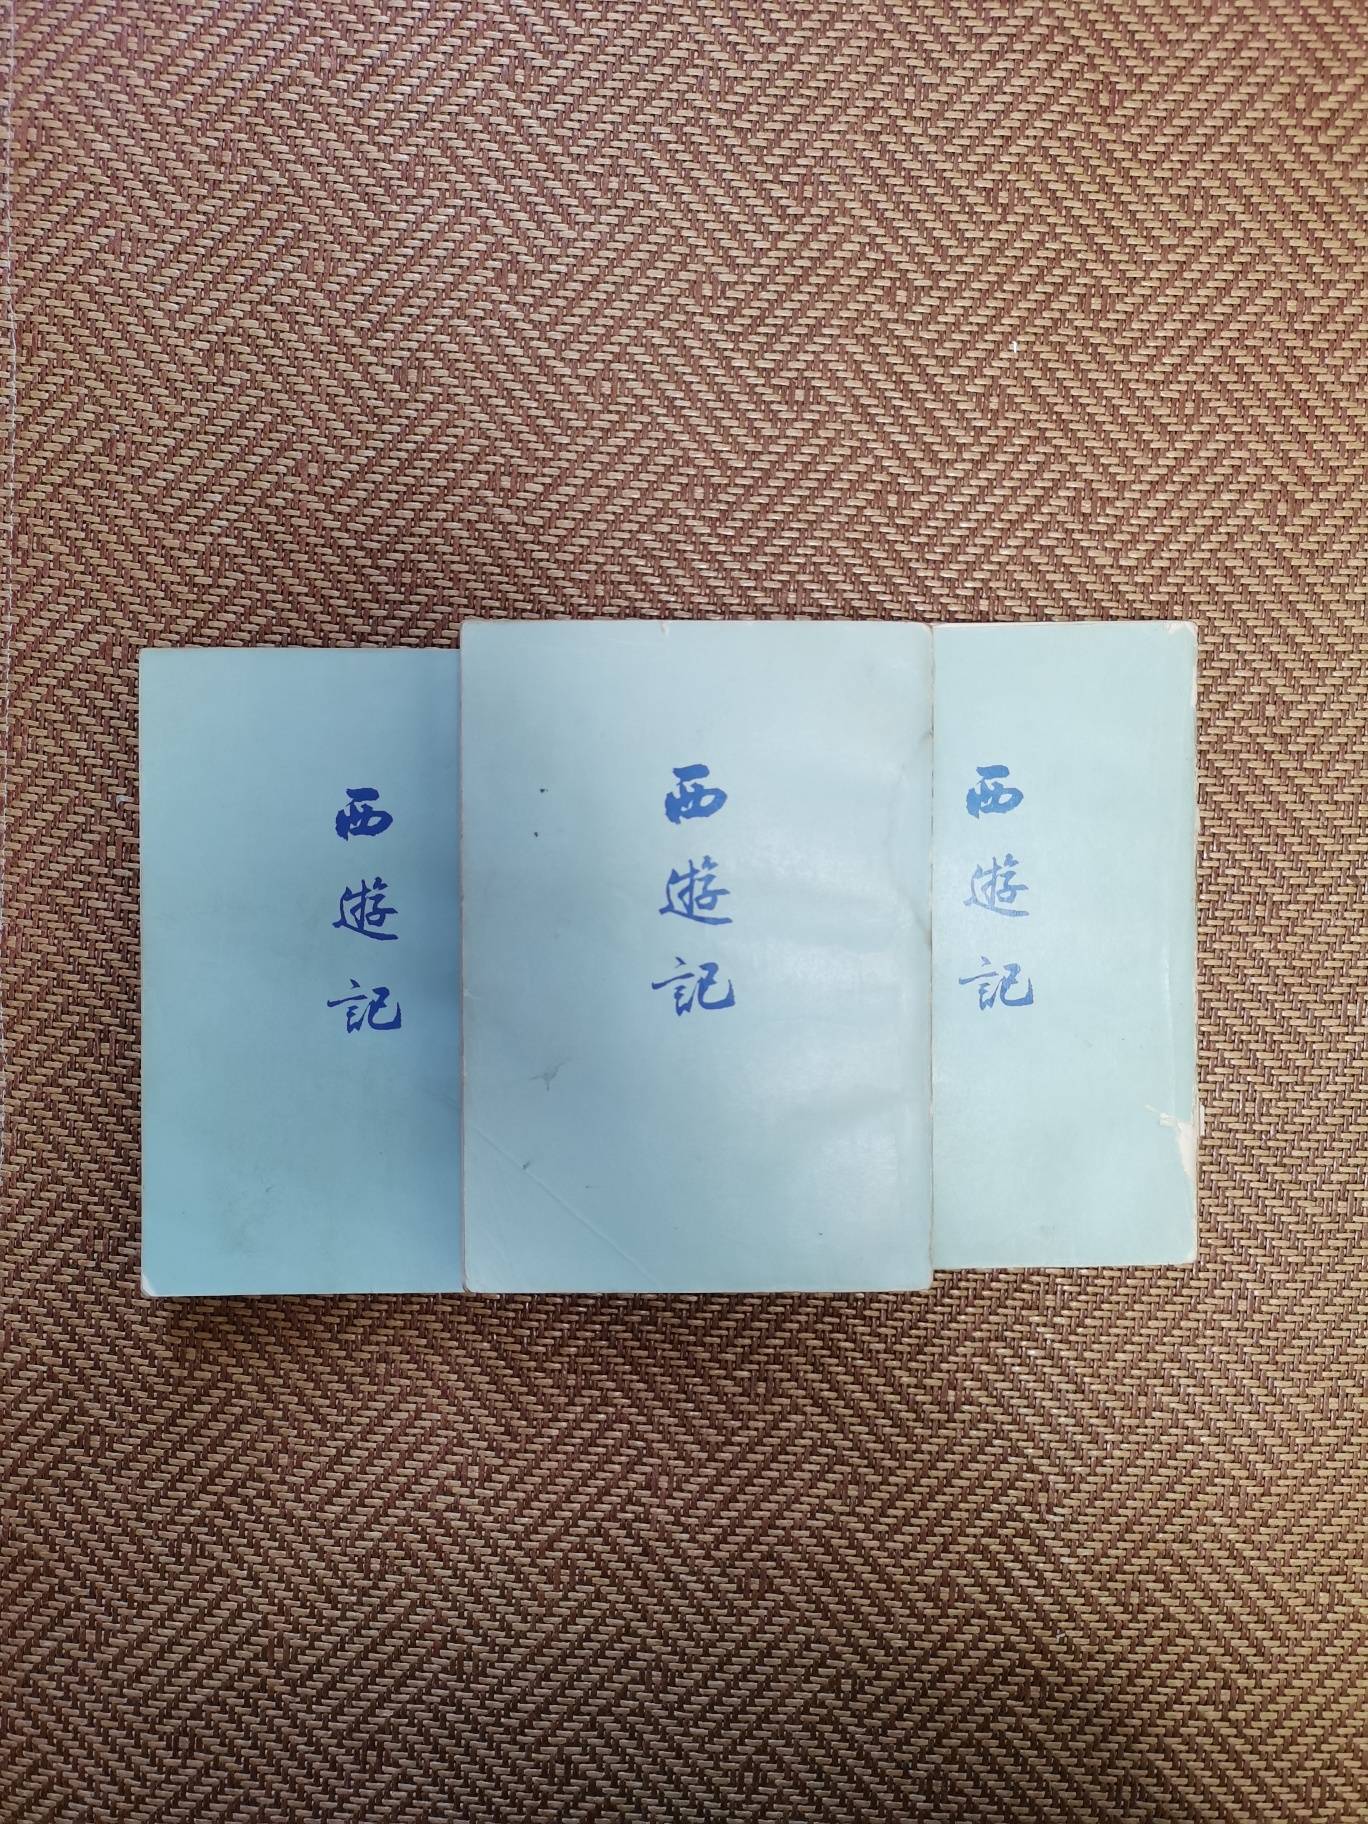 西遊記
西遊記
西遊記